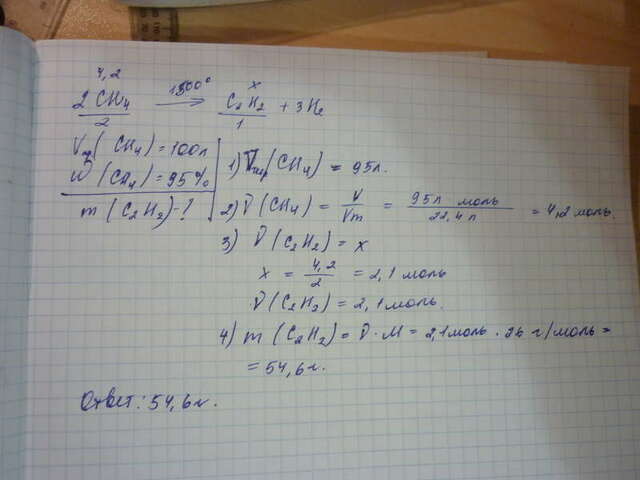 4,2 1500° x
2CH₄ → C₂H₂ + 3H₂
2 1
Vпр(CH₄) = 100л
W(CH₄) = 95%
m(C₂H₂) - ?
1) (CH₄) = 95л.
2) ν(CH₄) = V/Vm = 95л моль/22,4л = 4,2 моль.
3) ν(C₂H₂) = x
x = 4,2/2 = 2,1 моль
ν(C₂H₂) = 2,1 моль.
4) m(C₂H₂) = ν · M = 2,1 моль · 26 г/моль =
= 54,6 г.
Ответ: 54,6 г.